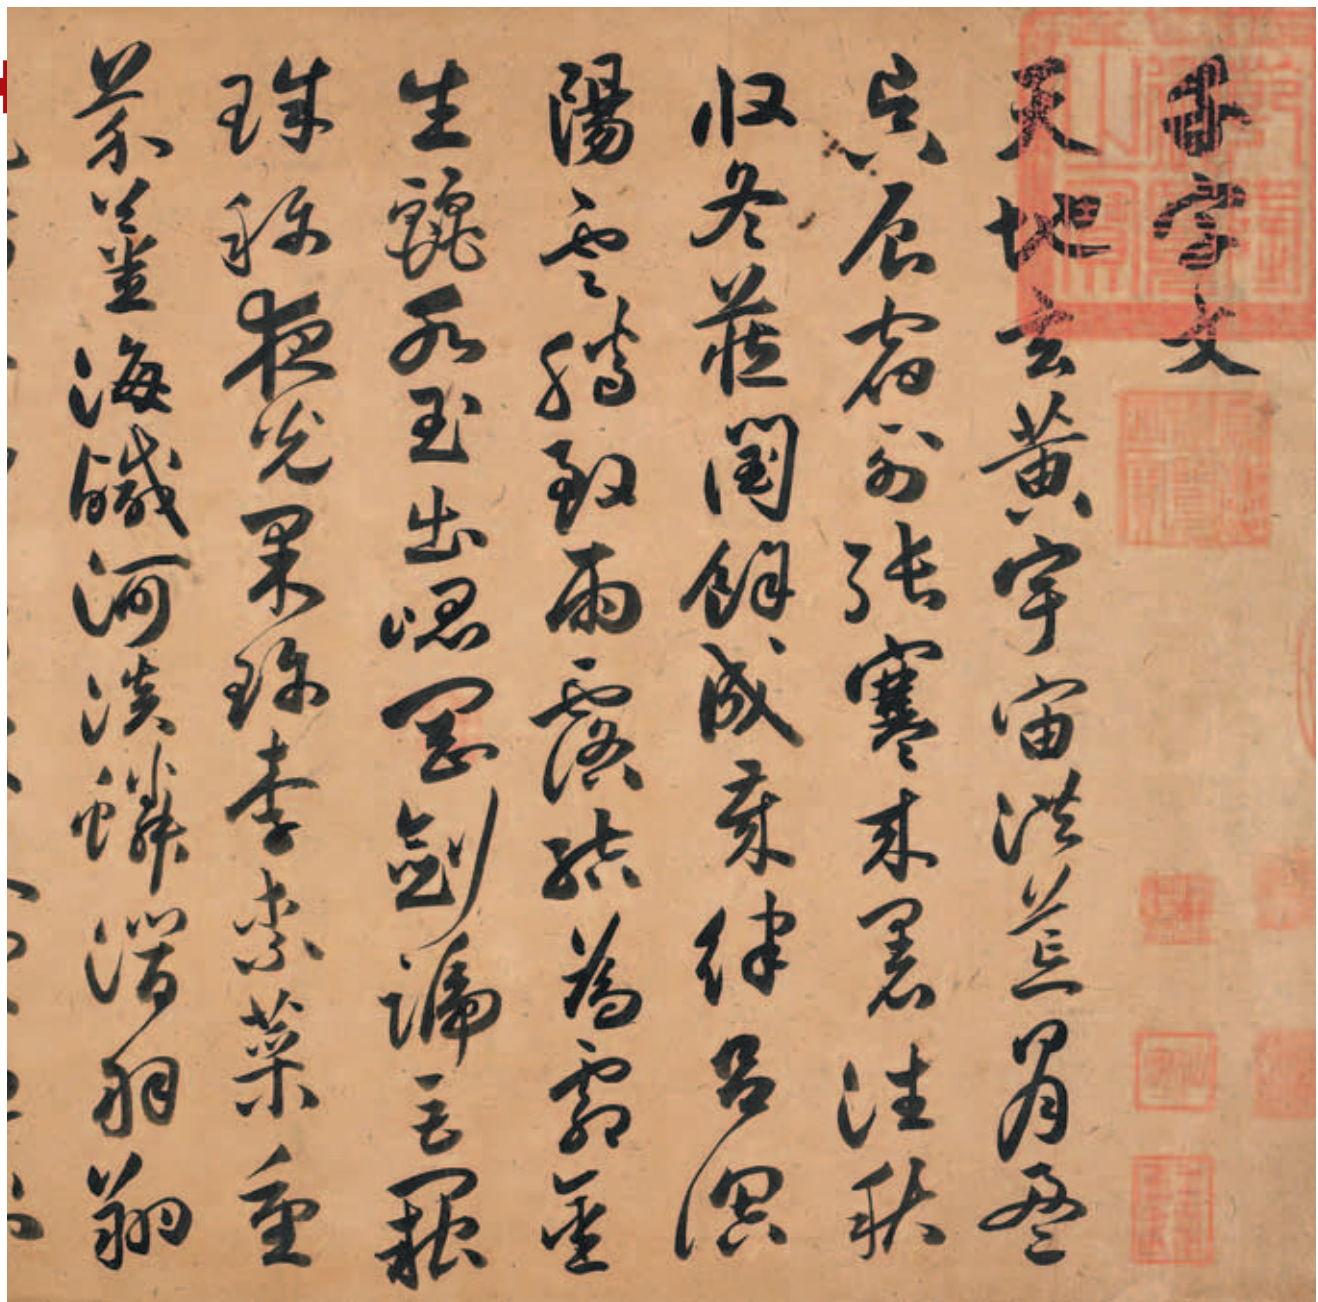 千字文
天地玄黃宇宙洪荒日月盈
昃辰宿列張寒來暑往秋
收冬藏閏餘成歲律呂調
陽雲騰致雨露結為霜金
生麗水玉出崑岡劍號巨闕
珠稱夜光果珍李柰菜重
芥薑海鹹河淡鱗潛羽翔